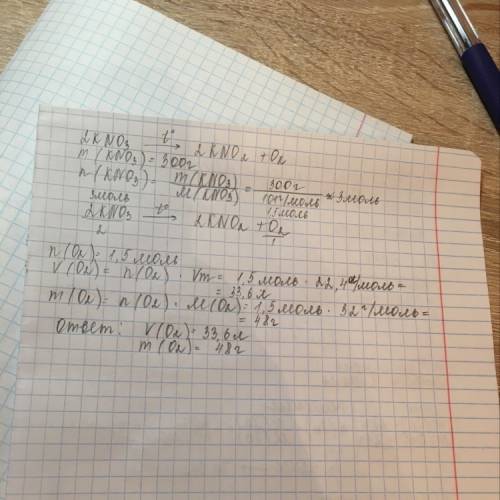 2KNO₃ t°→ 2KNO₂ + O₂
m(KNO₃) = 300г
n(KNO₃) = m(KNO₃)/M(KNO₃) = 300г/101г/моль ≈ 3моль
3моль 1,5моль
2KNO₃ t°→ 2KNO₂ + O₂
2 1
n(O₂) = 1,5моль
V(O₂) = n(O₂) · Vm = 1,5моль · 22,4л/моль =
= 33,6л
m(O₂) = n(O₂) · M(O₂) = 1,5моль · 32г/моль =
= 48г
Ответ: V(O₂) = 33,6л
m(O₂) = 48г